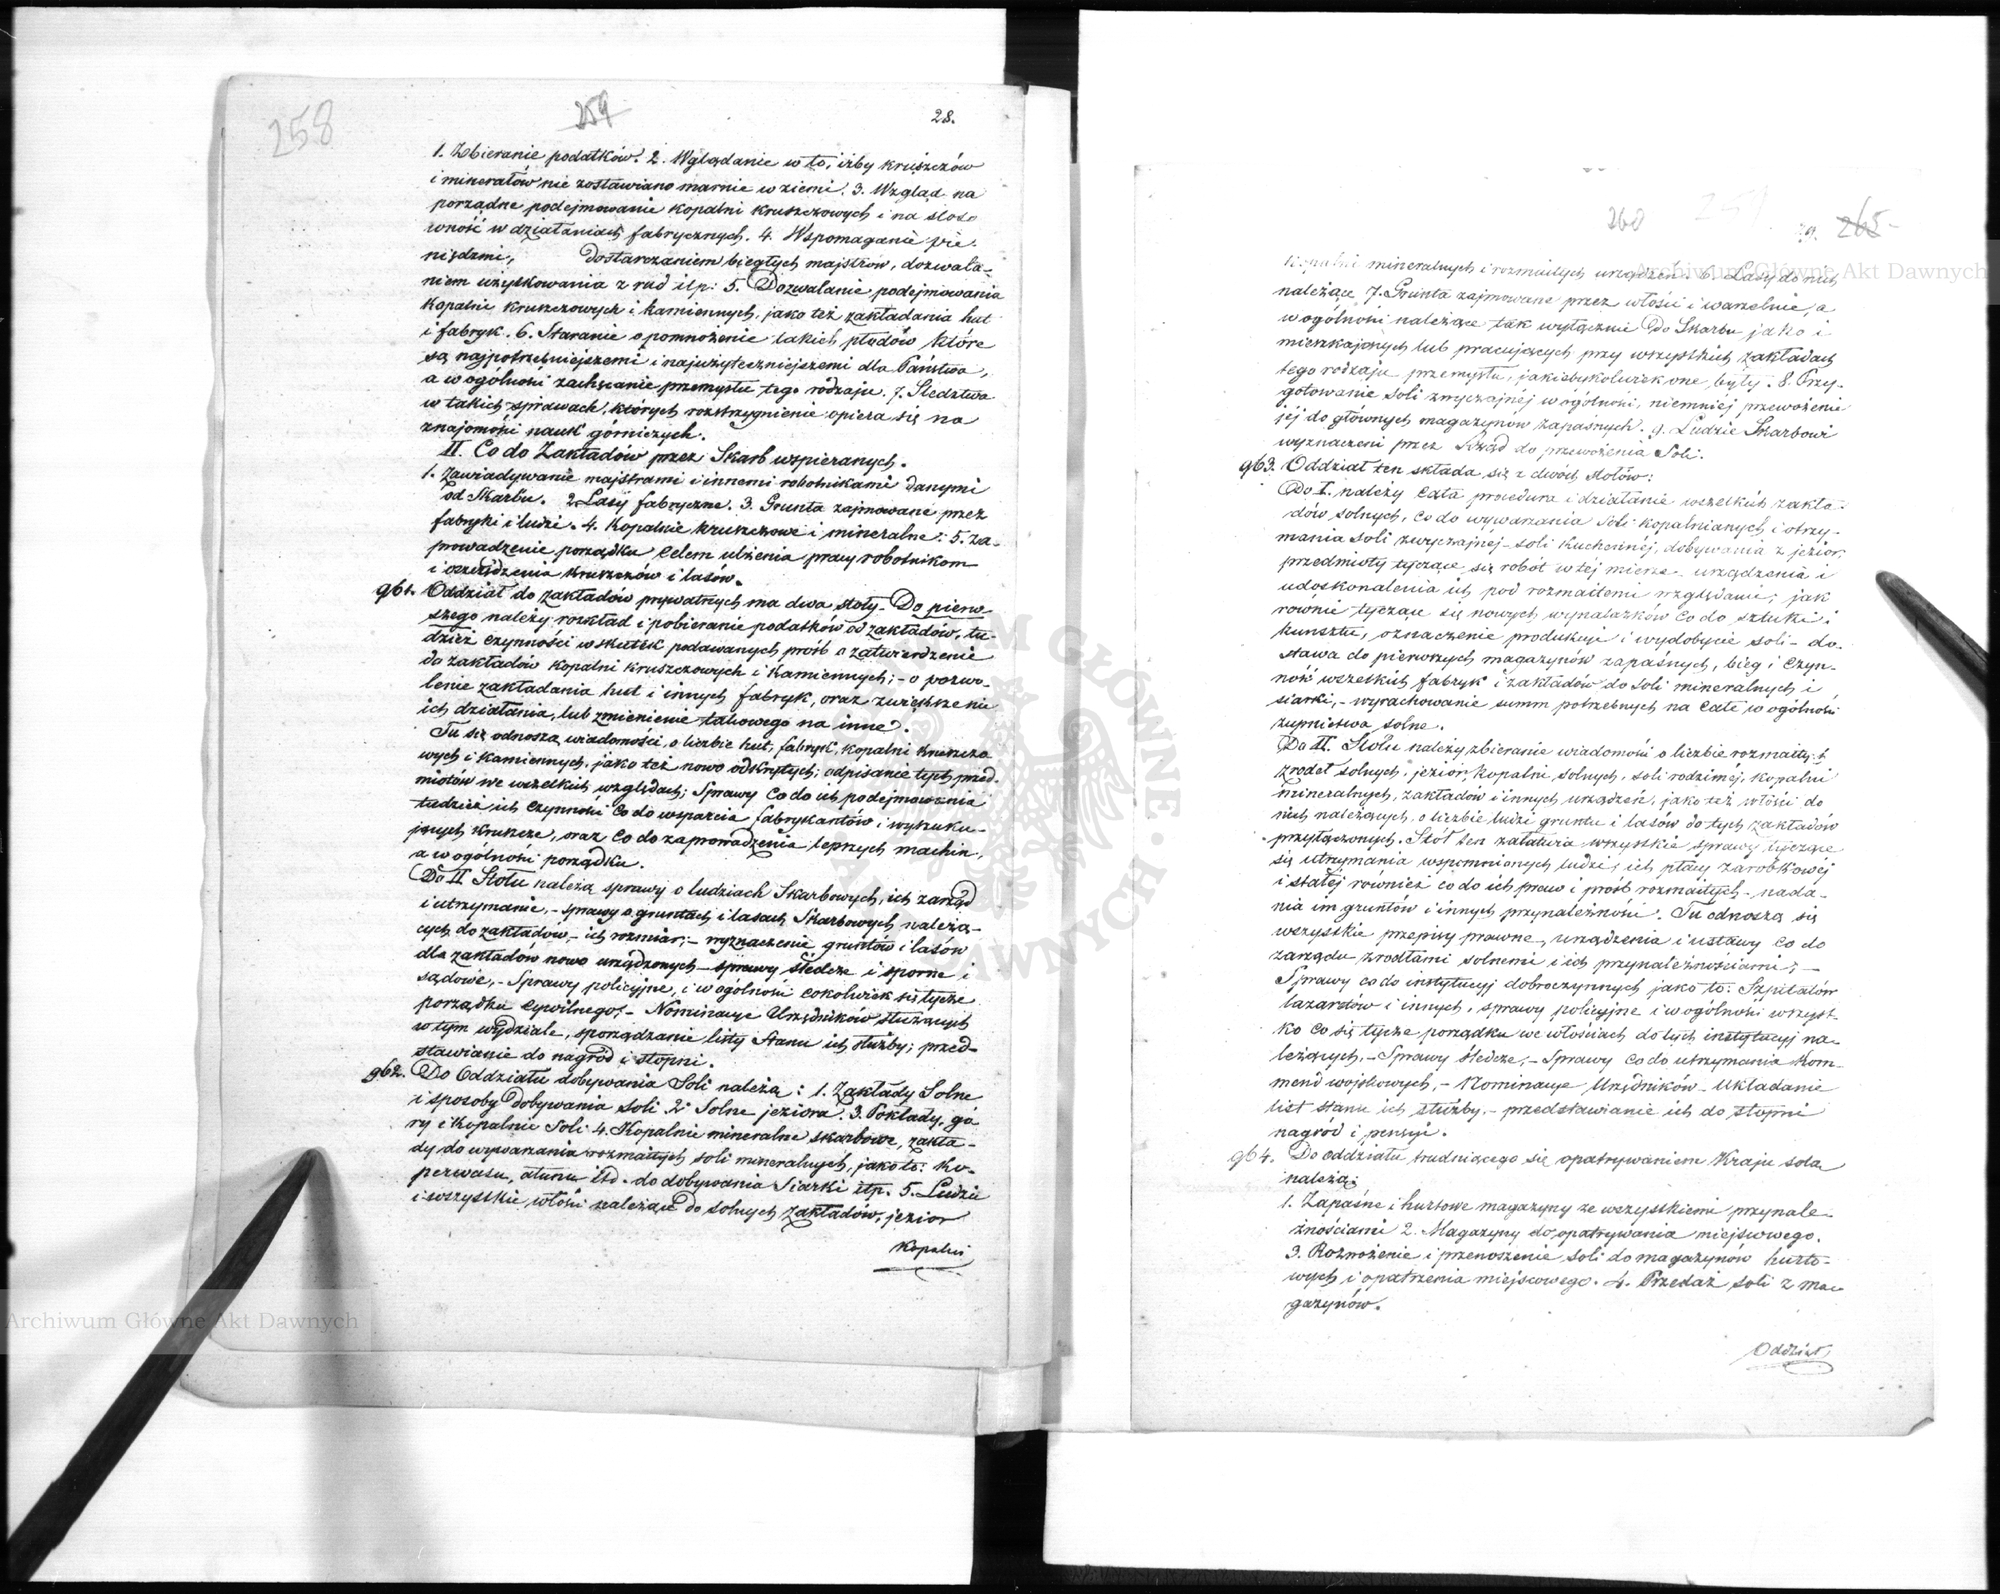 258
259
28.
1. Zbieranie podatków. 2. Wglądanie w to, iżby kruszczów
i minerałów nie zostawiano marnie w ziemi. 3. Wzgląd na
porządne podejmowanie kopalni kruszczowych i na stoso
wność w działaniach fabrycznych. 4. Wspomaganie pie-
niędzmi, dostarczaniem biegłych majstrów, dozwala-
niem użyskowania z rud itp: 5. Dozwalanie podejmowania
kopalni kruszczowych i kamiennych, jako też zakładania hut
i fabryk. 6. Staranie o pomnożenie takich płodów które
są najpotrzebniejszemi i najużyteczniejszemi dla Państwa,
a w ogólności zachęcanie przemysłu tego rodzaju. 7. Śledztwa
w takich sprawach, których rozstrzygnienie opiera się na
znajomości nauk górniczych.
II. Co do Zakładów przez Skarb wspieranych.
1. Zawiadywanie majstrami i innemi robotnikami danymi
od Skarbu. 2. Lasy fabryczne. 3. Grunta zajmowane przez
fabryki i ludzi. 4. Kopalnie kruszczowe i mineralne. 5. Za-
prowadzenie porządku celem ulżenia pracy robotnikom
i oszczędzenia kruszczów i lasów.
961. Oddział do zakładów prywatnych ma dwa stoły. Do pierw-
szego należy rozkład i pobieranie podatków od zakładów, tu-
dzież czynności wskutek podawanych prośb o zatwierdzenie
do zakładów kopalni kruszczowych i kamiennych; - o pozwo-
lenie zakładania hut i innych fabryk, oraz zwiększenie
ich działania, lub zmienienie takowego na inne.
Tu się odnoszą wiadomości, o liczbie hut, fabryk, kopalni kruszczo
wych i kamiennych, jako też nowo odkrytych; odpisanie tych przed-
miotów we wszelkich względach; Sprawy co do ich podejmowania
tudzież ich czynności co do wsparcia fabrykantów i wyszuku-
jących kruszcze, oraz co do zaprowadzenia lepszych machin,
a w ogólności porządku.
Do II Stołu należą sprawy o ludziach Skarbowych, ich zarząd
i utrzymanie, - sprawy o gruntach i lasach Skarbowych należą-
cych do zakładów, - ich rozmiar; - wyznaczenie gruntów i lasów
dla zakładów nowo urządzonych - sprawy śledcze i sporne i
sądowe, - Sprawy policyjne, i w ogólności cokolwiek się tycze
porządku cywilnego, - Nominacye Urzędników służących
w tym wydziale, sporządzanie listy stanu ich służby; przed-
stawianie do nagród i stopni.
962. Do Oddziału dobywania Soli należą: 1. Zakłady Solne
i sposoby dobywania soli 2. Solne jeziora. 3. Pokłady, gó
ry i kopalnie Soli 4. Kopalnie mineralne skarbowe, zakła-
dy do wywarzania rozmaitych soli mineralnych, jako to: ko-
perwasu, ałunu itd. do dobywania Siarki itp. 5. Ludzie
i wszystkie włości należące do solnych zakładów, jezior
Kopalni
260
265
Kopalni mineralnych i rozmaitych urządzeń 6. Lasy do nich
należące 7. Grunta zajmowane przez włości i warzelnie, a
w ogólności należące tak wyłącznie do Skarbu jako i
mieszkających lub pracujących przy wszystkich zakładach
tego rodzaju przemysłu, jakiebykolwiek one były. 8. Przy-
gotowanie soli zwyczajnéj w ogólności, niemniéj przewożenie
jéj do głównych magazynów zapasnych. 9. Ludzie Skarbowi
wyznaczeni przez Rząd do przewożenia Soli.
963. Oddział ten składa się z dwóch stołów:
Do I. należy cała procedura i działanie wszelkich zakła-
dów solnych, co do wywarzania soli kopalnianych, i otrzy-
mania soli zwyczajnéj - soli kuchennéj, dobywania z jezior,
przedmioty tyczące się robót w téj mierze - urządzenia i
udoskonalenia ich pod rozmaitemi względami, jak
rownie tyczące się nowych wynalazków co do sztuki i
kunsztu, oznaczenie produkcyi i wydobycie soli - do-
stawa do pierwszych magazynów zapaśnych, bieg i czyn-
ność wszelkich fabryk i zakładów do soli mineralnych i
siarki, - wyrachowanie summ potrzebnych na całe w ogólności
żupnictwo solne.
Do II. Stołu należy zbieranie wiadomości o liczbie rozmaitych
źrodeł solnych, jezior, kopalni solnych, soli rodziméj, kopalni
mineralnych, zakładów i innych urządzeń, jako też włości do
nich należących, o liczbie ludzi gruntu i lasów do tych zakładów
przyłączonych. Stół ten załatwia wszystkie sprawy tyczące
się utrzymania wspomnianych ludzi, ich płacy zarobkowéj
i stałéj również co do ich praw i prośb rozmaitych - nada-
nia im gruntów i innych przynależności. Tu odnoszą się
wszystkie przepisy prawne, urządzenia i ustawy co do
zarządu źrodłami solnemi i ich przynależnościami; -
Sprawy co do instytucyj dobroczynnych jako to: Szpitalów
lazaretów i innych, sprawy policyjne i w ogólności wszyst-
ko co się tycze porządku we włościach do tych instytucyj na-
leżących, - Sprawy śledcze, - Sprawy co do utrzymania Kom-
mend wojskowych, - Nominacye Urzędników - Układanie
list stanu ich służby - przedstawianie ich do stopni
nagród i pensyi.
964. Do oddziału trudniącego się opatrywaniem Kraju solą
należą:
1. Zapaśne i hurtowe magazyny ze wszystkiemi przynale-
żnościami 2. Magazyny do opatrywania miejscowego.
3. Roznożenie i przenoszenie soli do magazynów hurto-
wych i opatrzenia miejscowego. 4. Przedaż soli z ma-
gazynów.
Oddział
Archiwum Główne Akt Dawnych
Archiwum Główne Akt Dawnych